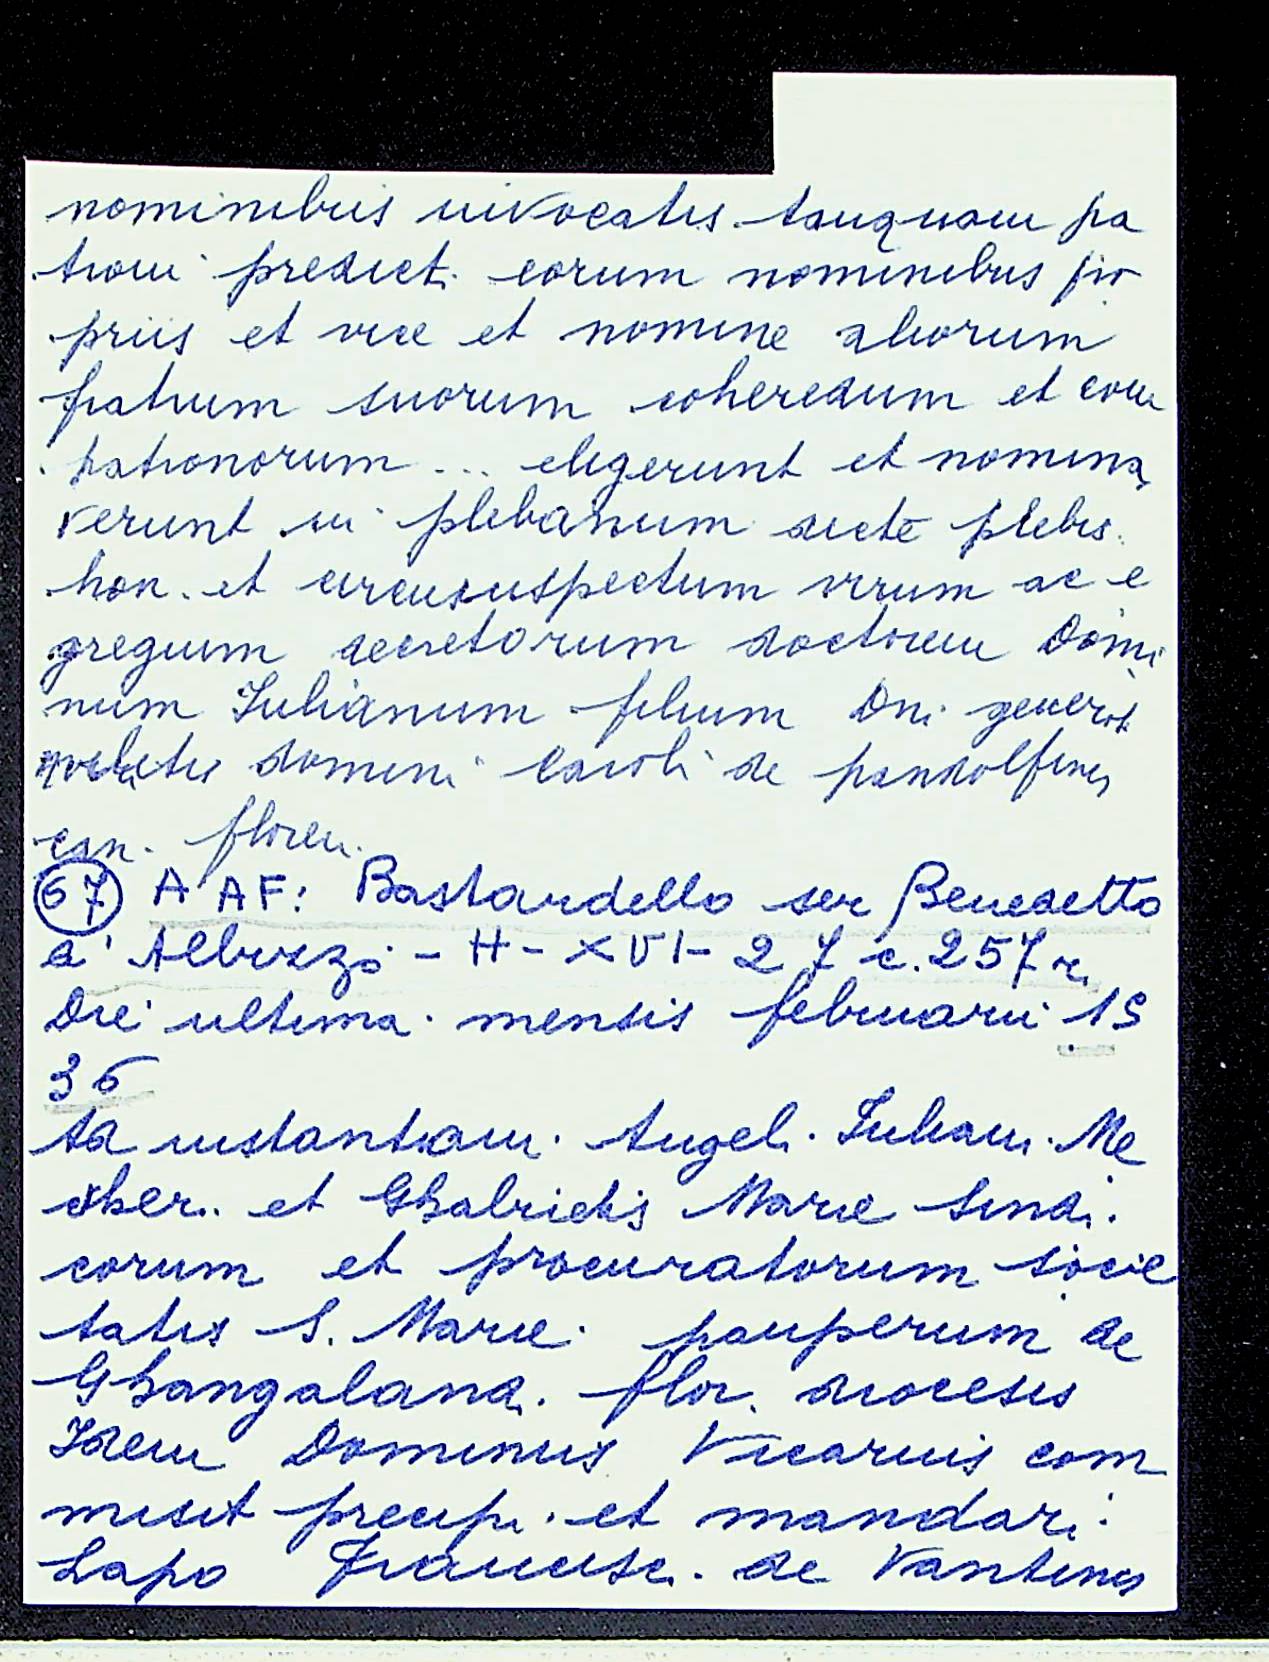 nominibus invocatis tanquam pa
troni predict. eorum nominibus pro
priis et vice et nomine aliorum
fratrum suorum coheredum et com
patronorum ... eligerunt et nomina
verunt in plebanum dicte plebis
hon. et circunspectum virum ac e
gregium decretorum doctorem Domi
num Iulianum filium Dni generis
militis domini Caroli de pandolfinis
can. floren.
67 AAF: Bastardello ser Benedetto
d'Albizzo - H - XVI - 27 c. 257 r.
Die ultima mensis februarii 15
36
Ad instantiam Angeli Iuliani Me
et Ghabrielis Marie Sindi.
corum et procuratorum socie
tatis S. Marie pauperum de
Ghangaland. flor. diocesis
Idem Dominus Vicarius com
misit precip. et mandari
Lapo Francisc. de Vantinis